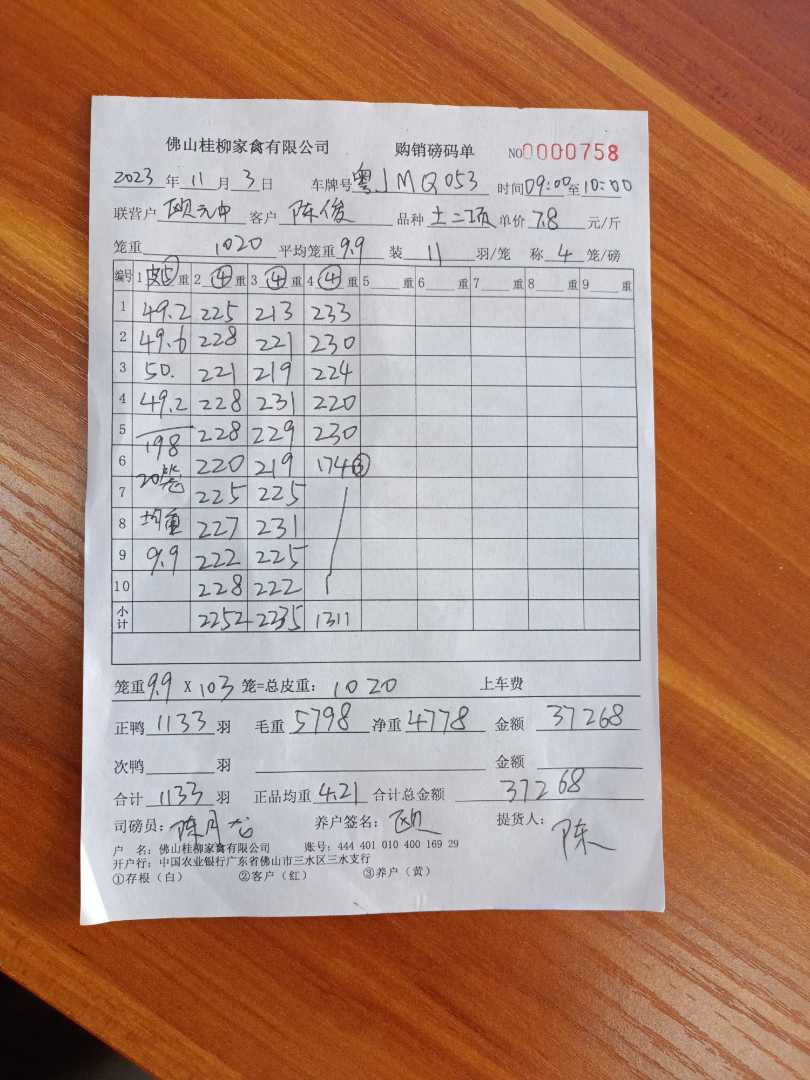 佛山桂柳家禽有限公司 购销磅码单 NO0000758
2023 年 11 月 3 日 车牌号 粤JMQ053 时间 09:00 至 10:00
联营户 欧元中 客户 陈俊 品种 土二项 单价 7.8 元/斤
笼重 1020 平均笼重 9.9 装 11 羽/笼 称 4 笼/磅
编号 1 皮⑤ 重 2 ④ 重 3 ④ 重 4 ④ 重 5 重 6 重 7 重 8 重 9 重
1 49.2 225 213 233
2 49.6 228 221 230
3 50. 221 219 224
4 49.2 228 231 220
5 198 228 229 230
6 20笼 220 219 174③
7 225 225
8 均重 227 231
9 9.9 222 225
10 228 222
小计 2252 2235 1311
笼重 9.9 X 103 笼=总皮重: 1020 上车费
正鸭 1133 羽 毛重 5798 净重 4778 金额 37268
次鸭 羽 金额
合计 1133 羽 正品均重 4.21 合计总金额 37268
司磅员: 陈月龙 养户签名: 欧 提货人: 陈
户 名: 佛山桂柳家禽有限公司 账号: 444 401 010 400 169 29
开户行: 中国农业银行广东省佛山市三水区三水支行
①存根(白) ②客户(红) ③养户(黄)